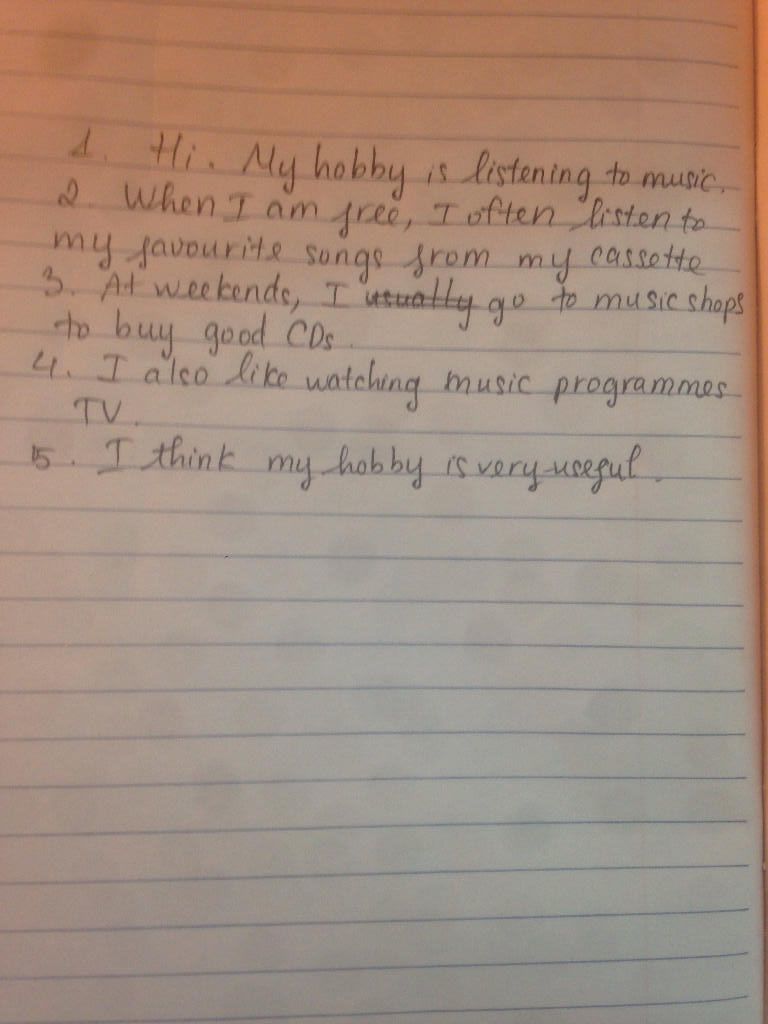 1. Hi. My hobby is listening to music.
2. When I am free, I often listen to
my favourite songs from my cassette
3. At weekends, I usually go to music shops
to buy good CDs.
4. I also like watching music programmes
TV.
5. I think my hobby is very useful.